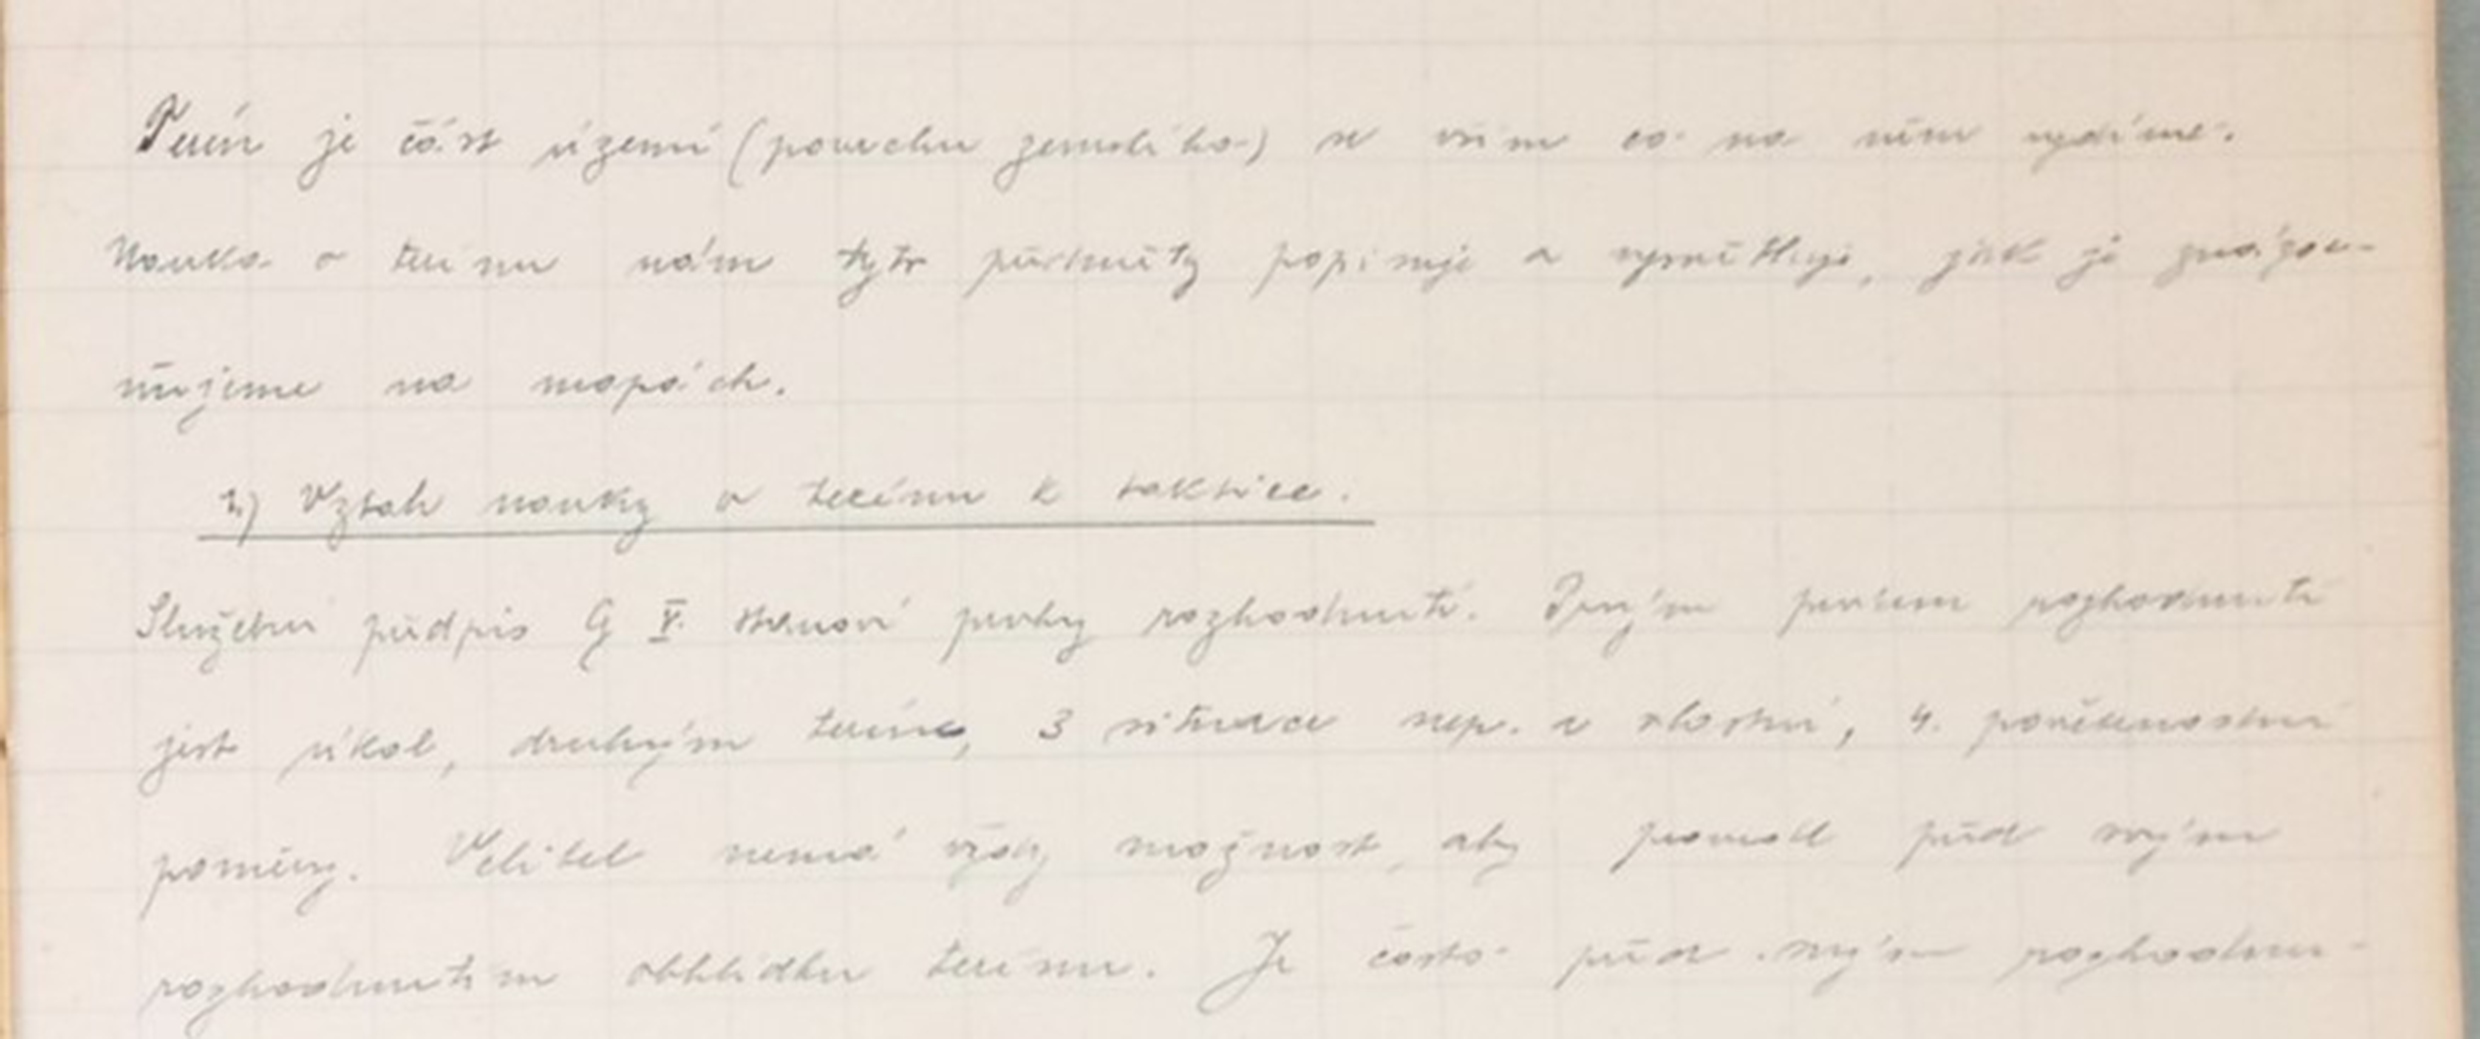 Terén je část území (povrchu zemského) se vším co na něm vydíme.
Nauka o terénu nám tyto předměty popisuje a vysvětluje, jak je znázor-
ňujeme na mapách.
1.) Vztah nauky o terénu k taktice.
Služební předpis G V. stanoví prvky rozhodnutí. Prvým prvkem rozhodnutí
jest úkol, druhým terén, 3 situace nep. a vlastní, 4. povětrnostní
poměry. Velitel nemá vždy možnost, aby provedl před svým
rozhodnutím obhlídku terénu. Je často před svým rozhodnu-